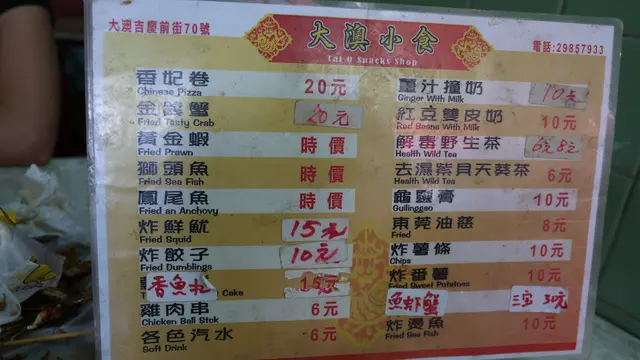 大澳吉慶前街70號
大澳小食
Tai O Snacks Shop
電話:29857933
香妃卷 20元
Chinese Pizza
金錢蟹 20元
Fried Tasty Crab
黃金蝦 時價
Fried Prawn
獅頭魚 時價
Fried Sea Fish
鳳尾魚 時價
Fried an Anchovy
炸鮮魷 15元
Fried Squid
炸餃子 10元
Fried Dumblings
香魚
Cake
雞肉串 6元
Chicken Ball Stok
各色汽水 6元
Soft Drink
薑汁撞奶 10元
Ginger With Milk
紅豆雙皮奶 10元
Red Beans With Milk
解毒野生茶 6元8元
Health Wild Tea
去濕紫貝天葵茶 6元
Health Wild Tea
龜靈膏 10元
Guilinggao
東莞油慈 8元
Fried
炸薯條 10元
Chips
炸番薯 10元
Fried Sweet Potatoes
魚虾蟹 三宝 30元
炸燙魚 10元
Fried Sea Fish